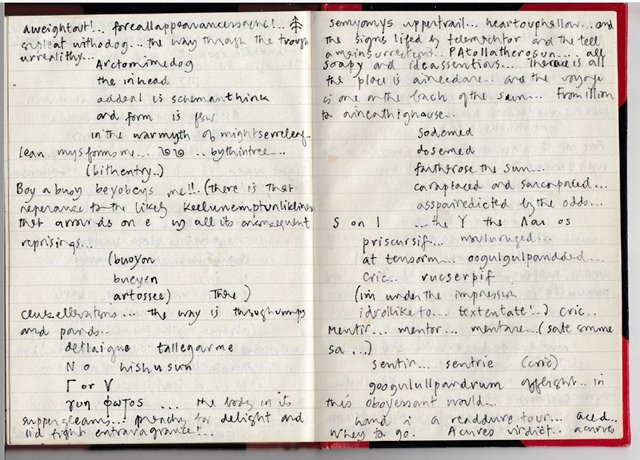 aweightout!.. forcallappearancessache!..
supleat withodog... the way through the trough
urrealithy...
Arctomimedog
the inhead
addeal is schemanthink
and form is flow
in the warmyth of mightserreleaf
lean mysformsme... bythintree..
(bithentry..)
Boy a buoy beyobeys me!!.. (there is that
neperance to the likely keelunemptunliklines
that arrounds on e in all its
reprisings...
(buoyon
bueyen
artossee) There)
the way is throughumps
and pands..
detlaigne tallegarme
No hishusun
Γ or V
γυη φωτος ... the body in its
suppergleams... preachy for delight and
lid fight entravagrance!...
semyomys uppertrail... heartouphallow... and
the signs lifed by telemachtor and the tell
PAtollatherosun... all
soapy and ideassentious... There is all
the place is ainecdare.. and the voyage
is one on the back of the sun... From illion
to aineathighouse..
sodemed
dosemed
fartherose the sun...
carnplaced and sancnpaled...
asspairedicted by the odds...
S on I ...the Y the Λαι os
priscursif...
at tensorm... oogulgulpandded...
cric.. rucserpif
(im under the impression
idrolliketo... textentate!..) cric..
Mentir... mentor... mentare.. (sate
sa...)
sentir... sentrie (cric)
googulullpandrum offlight.. in
this oboyessant world...
hand is a readdure tour... aced..
wheys to go. Acurves virdict.. acurves